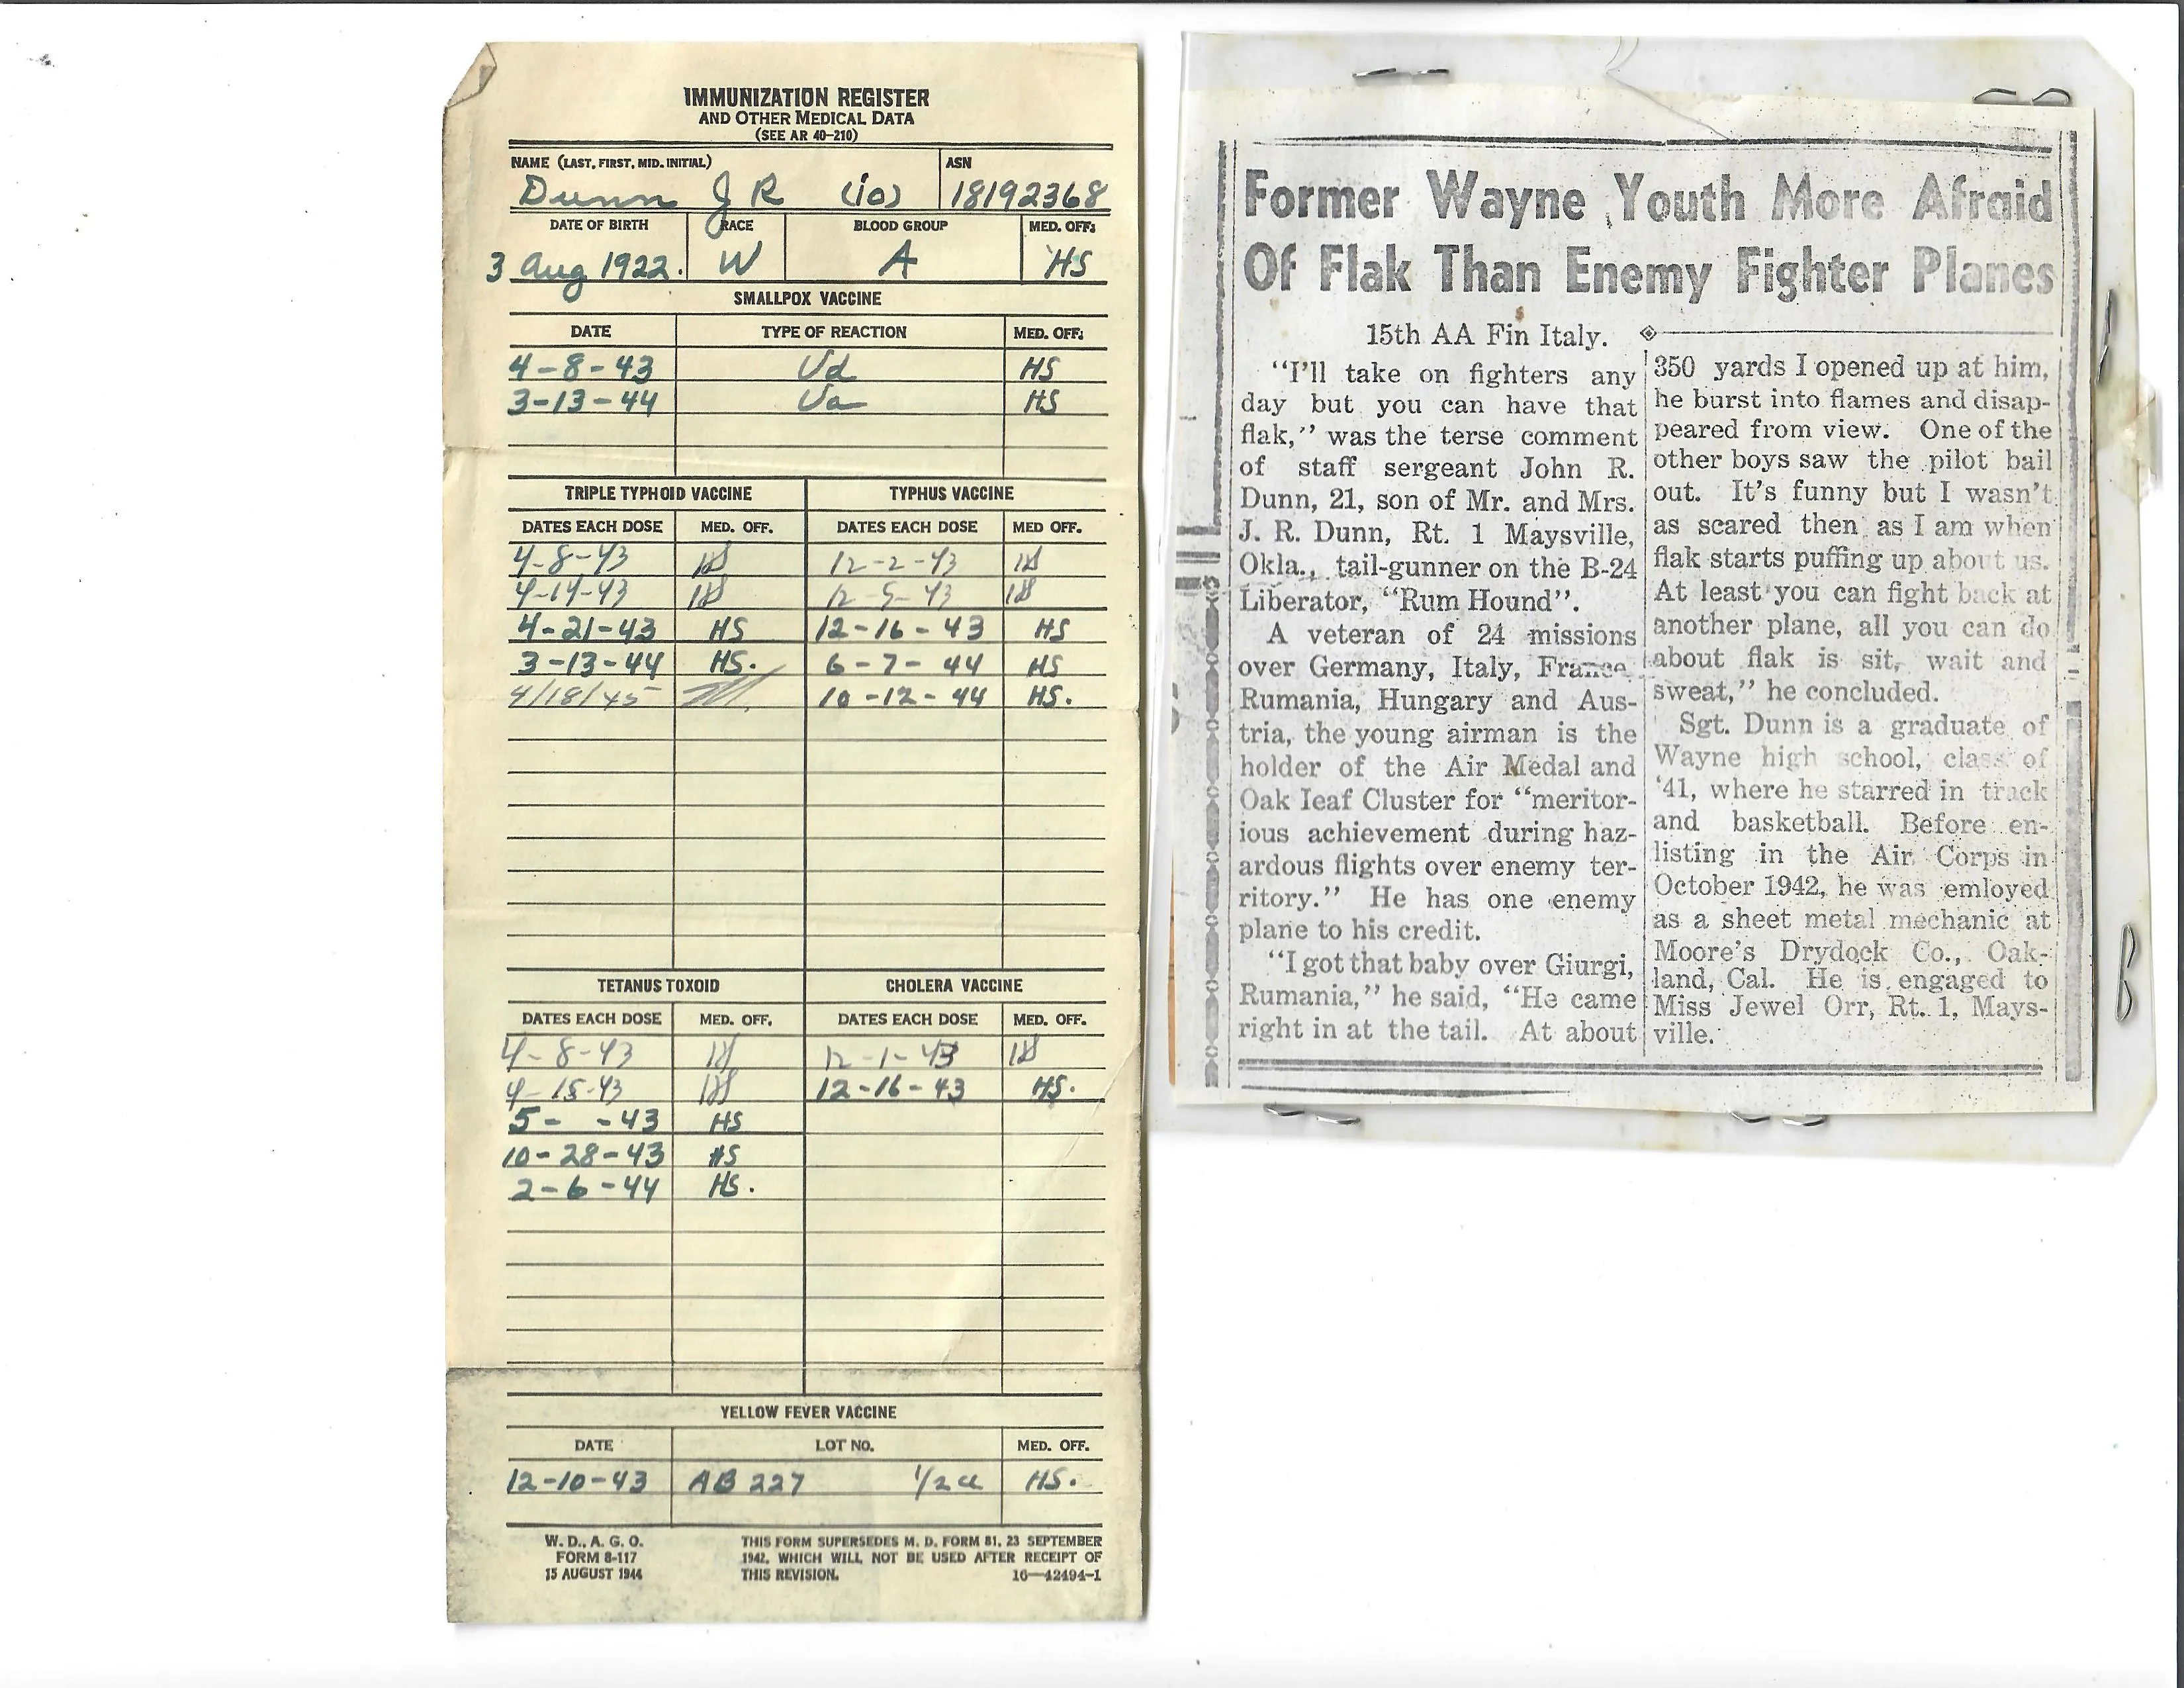 IMMUNIZATION REGISTER
AND OTHER MEDICAL DATA
(SEE AR 40-210)
NAME (LAST, FIRST, MID. INITIAL) ASN
Dunn J R (io) 18192368
DATE OF BIRTH RACE BLOOD GROUP MED. OFF.
3 Aug 1922. W A HS
SMALLPOX VACCINE
DATE TYPE OF REACTION MED. OFF.
4-8-43 Vd HS
3-13-44 Va HS
TRIPLE TYPHOID VACCINE TYPHUS VACCINE
DATES EACH DOSE MED. OFF. DATES EACH DOSE MED OFF.
4-8-43 HS 12-2-43 HS
4-14-43 HS 12-5-43 HS
4-21-43 HS 12-16-43 HS
3-13-44 HS. 6-7-44 HS
4/18/45 10-12-44 HS.
TETANUS TOXOID CHOLERA VACCINE
DATES EACH DOSE MED. OFF. DATES EACH DOSE MED. OFF.
4-8-43 HS 12-1-43 HS
4-15-43 HS 12-16-43 HS.
5- -43 HS
10-28-43 HS
2-6-44 HS.
YELLOW FEVER VACCINE
DATE LOT NO. MED. OFF.
12-10-43 AB 227 1/2 cc HS.
W. D., A. G. O.
FORM 8-117
15 AUGUST 1944
THIS FORM SUPERSEDES M. D. FORM 81, 23 SEPTEMBER
1942, WHICH WILL NOT BE USED AFTER RECEIPT OF
THIS REVISION. 16—42494-1
Former Wayne Youth More Afraid
Of Flak Than Enemy Fighter Planes
15th AA Fin Italy.
“I'll take on fighters any
day but you can have that
flak,” was the terse comment
of staff sergeant John R.
Dunn, 21, son of Mr. and Mrs.
J. R. Dunn, Rt. 1 Maysville,
Okla., tail-gunner on the B-24
Liberator, “Rum Hound”.
A veteran of 24 missions
over Germany, Italy, France,
Rumania, Hungary and Aus-
tria, the young airman is the
holder of the Air Medal and
Oak leaf Cluster for “meritor-
ious achievement during haz-
ardous flights over enemy ter-
ritory.” He has one enemy
plane to his credit.
“I got that baby over Giurgi,
Rumania,” he said, “He came
right in at the tail. At about
350 yards I opened up at him,
he burst into flames and disap-
peared from view. One of the
other boys saw the pilot bail
out. It's funny but I wasn't
as scared then as I am when
flak starts puffing up about us.
At least you can fight back at
another plane, all you can do
about flak is sit, wait and
sweat,” he concluded.
Sgt. Dunn is a graduate of
Wayne high school, class of
'41, where he starred in track
and basketball. Before en-
listing in the Air Corps in
October 1942, he was emloyed
as a sheet metal mechanic at
Moore's Drydock Co., Oak-
land, Cal. He is engaged to
Miss Jewel Orr, Rt. 1, Mays-
ville.